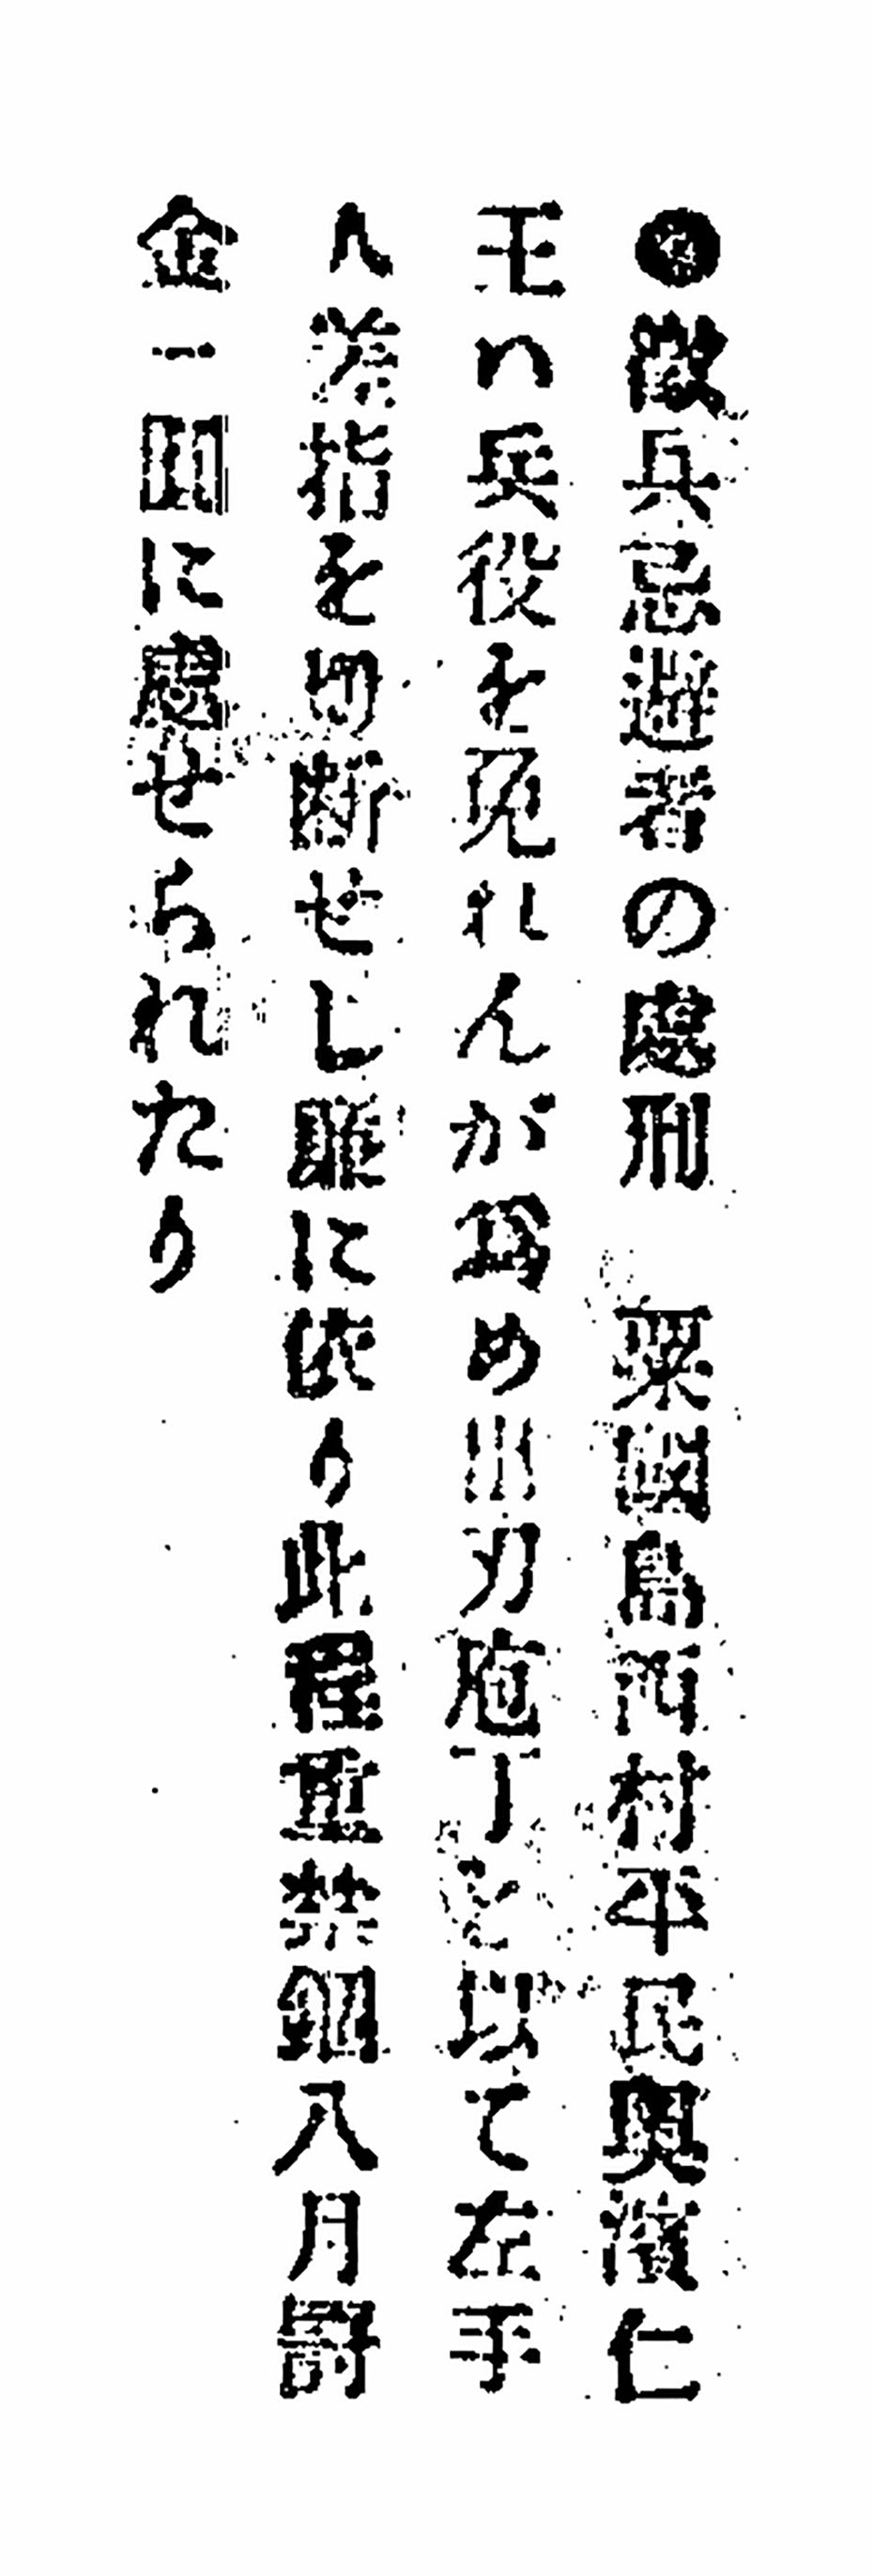 ◉徴兵忌避者の處刑　粟國島西村平民奥濱仁
王ハ兵役を免れんが爲め出刃庖丁を以て左手
人差指を切断せし廉に依り此程重禁錮八月罰
金一圓に處せられたり